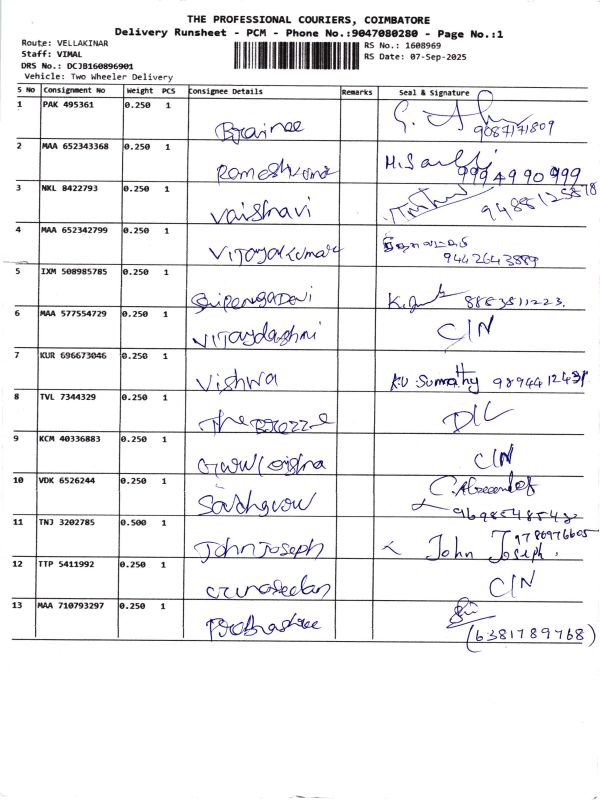 THE PROFESSIONAL COURIERS, COIMBATORE
Delivery Runsheet - PCM - Phone No.:9047080280 - Page No.:1
Route: VELLAKINAR
RS No.: 1608969
Staff: VIMAL
RS Date: 07-Sep-2025
DRS No.: DCJB160896901
Vehicle: Two Wheeler Delivery
S No Consignment No Weight PCS Consignee Details Remarks Seal & Signature
1 PAK 495361 0.250 1
9087171809
2 MAA 652343368 0.250 1
Rameshkumar 9994990999
3 NKL 8422793 0.250 1
Vaishnavi 9488125878
4 MAA 652342799 0.250 1
Vijayakumar
9442643889
5 IXM 508985785 0.250 1
8883811223.
6 MAA 577554729 0.250 1
C/N
7 KUR 696673046 0.250 1
Vishwa K.U Sumathy 9894412431
8 TVL 7344329 0.250 1
The Brezze D/L
9 KCM 40336883 0.250 1
C/N
10 VDK 6526244 0.250 1
9698548542
11 TNJ 3202785 0.500 1
9786976605
John Joseph John Joseph.
12 TTP 5411992 0.250 1
Gunaseelan C/N
13 MAA 710793297 0.250 1
Prabhashree
(6381789768)